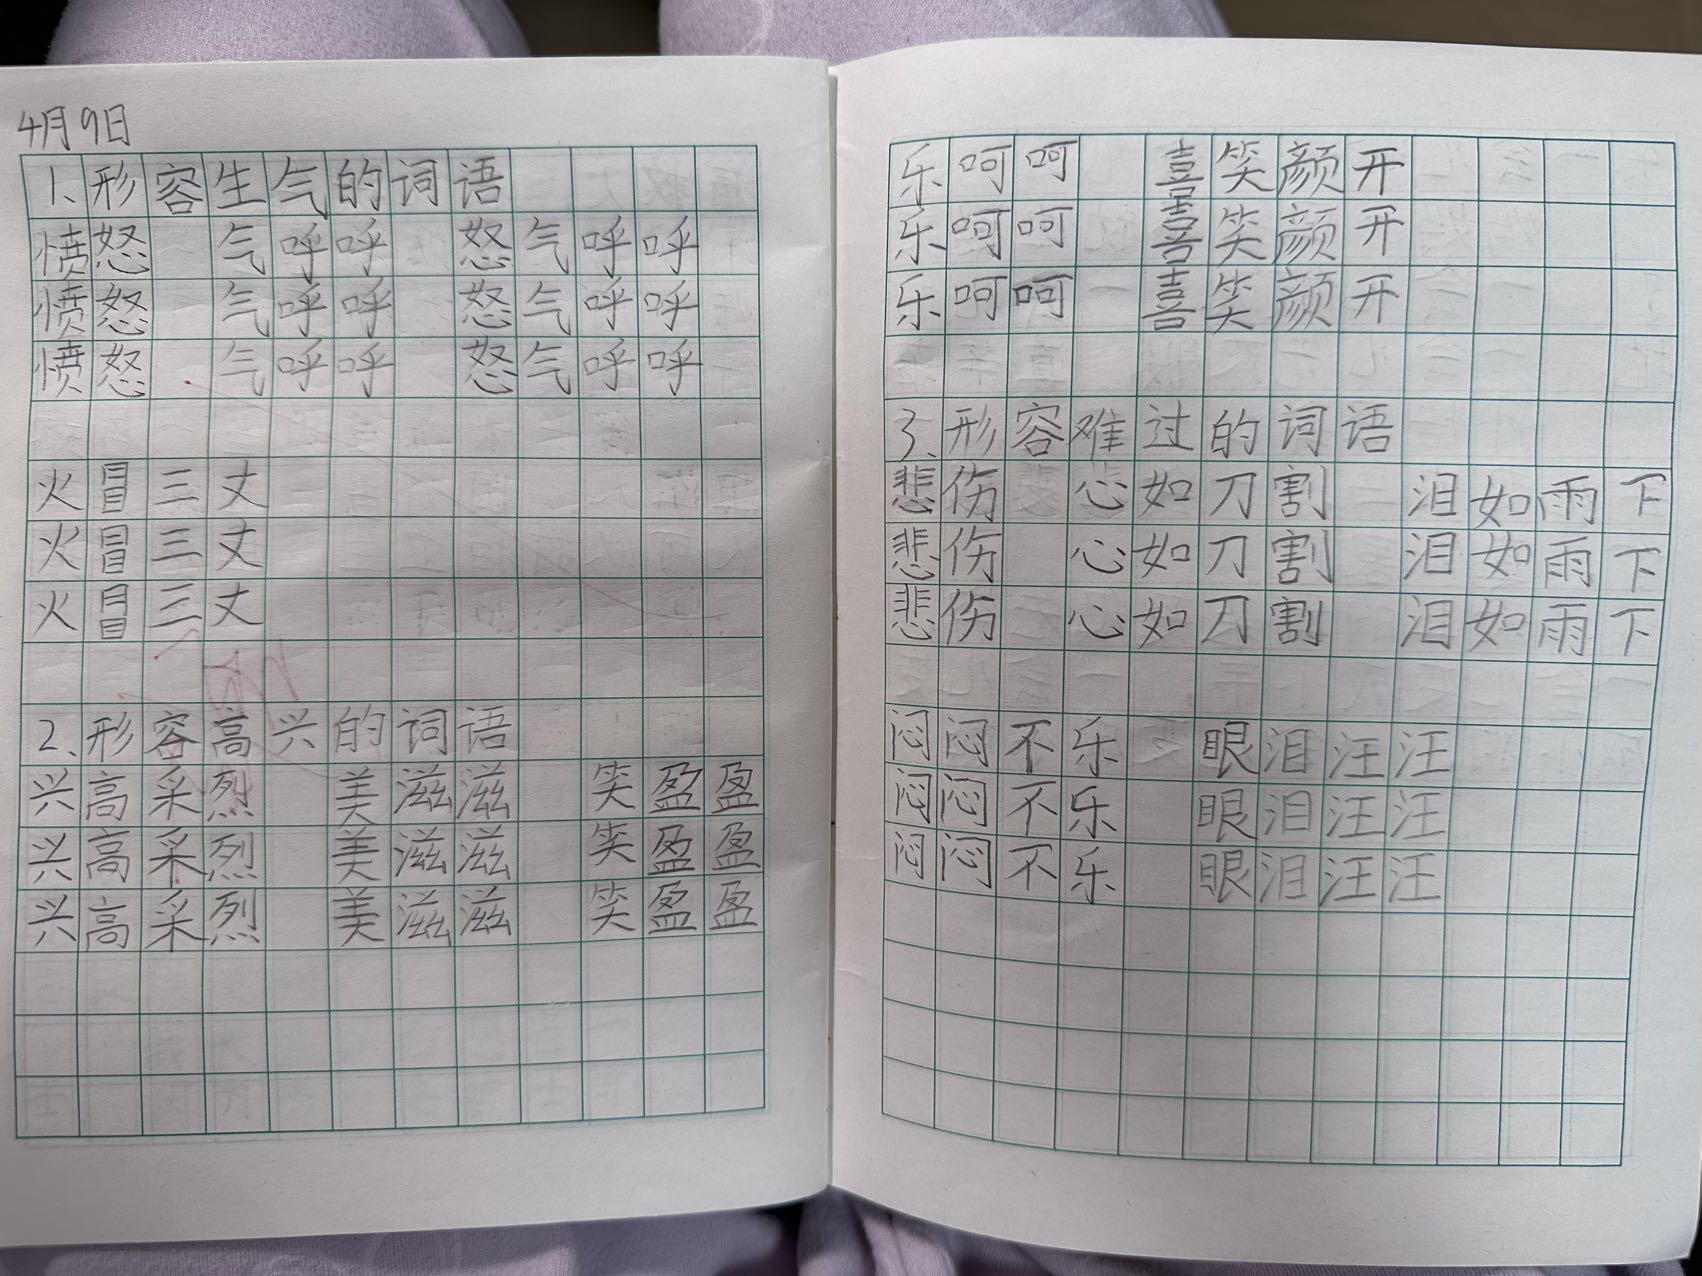 4月9日
1、形容生气的词语
愤怒 气呼呼 怒气呼呼
愤怒 气呼呼 怒气呼呼
愤怒 气呼呼 怒气呼呼
火冒三丈
火冒三丈
火冒三丈
2、形容高兴的词语
兴高采烈 美滋滋 笑盈盈
兴高采烈 美滋滋 笑盈盈
兴高采烈 美滋滋 笑盈盈
乐呵呵 喜笑颜开
乐呵呵 喜笑颜开
乐呵呵 喜笑颜开
3、形容难过的词语
悲伤 心如刀割 泪如雨下
悲伤 心如刀割 泪如雨下
悲伤 心如刀割 泪如雨下
闷闷不乐 眼泪汪汪
闷闷不乐 眼泪汪汪
闷闷不乐 眼泪汪汪